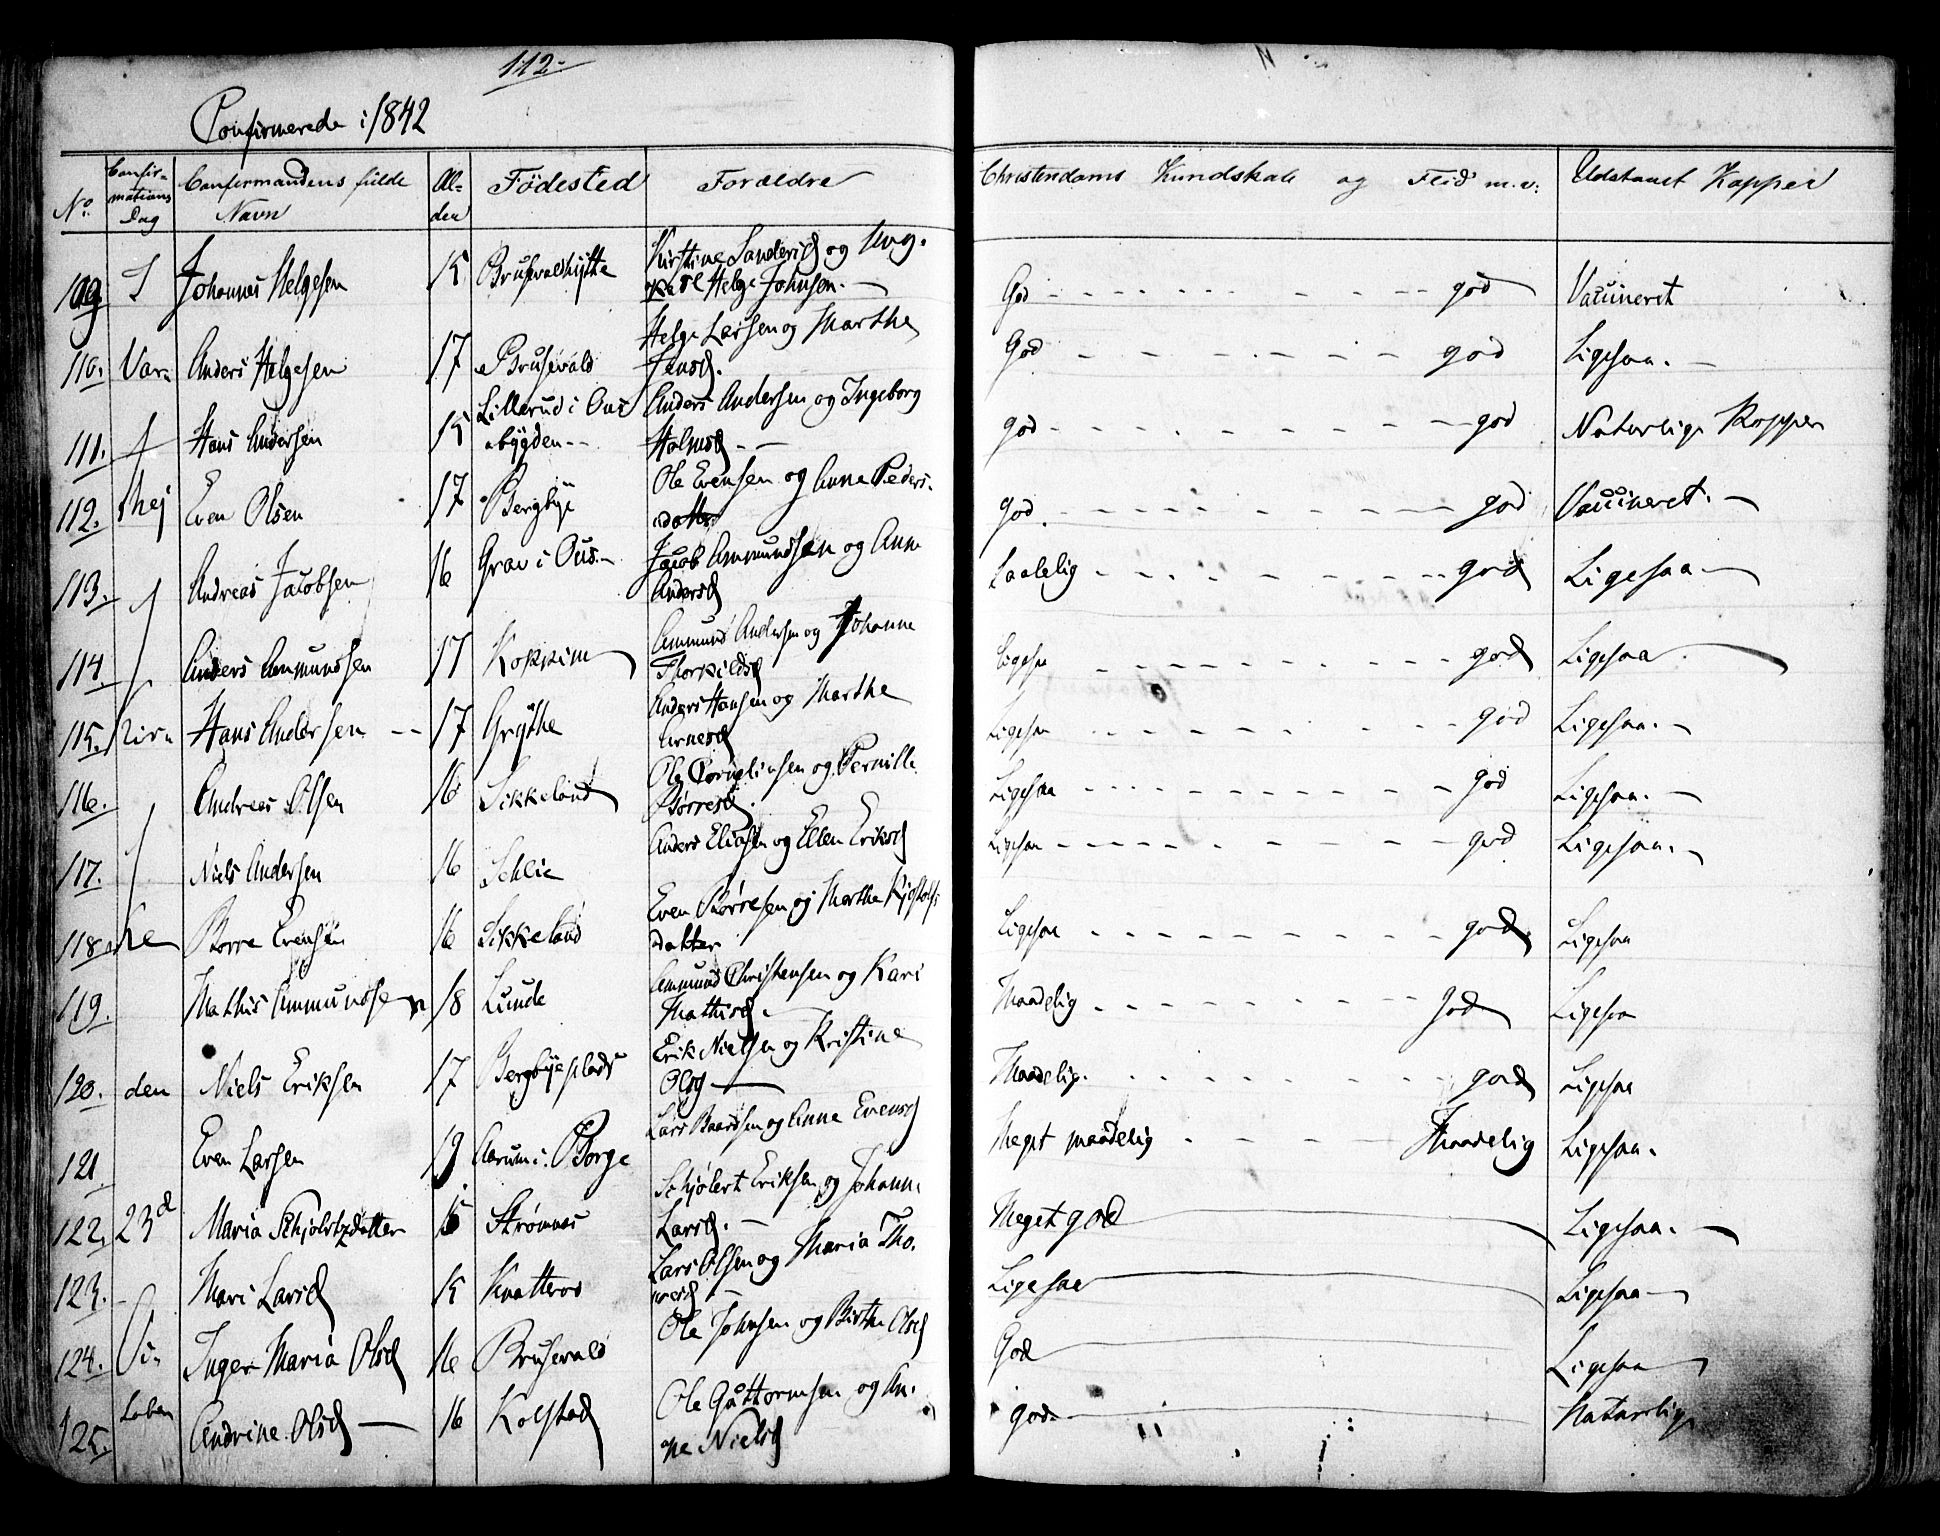 112.
Confirmerede i 1842
No. Confirmations Dag Confirmandens fulde Navn Alder Födested Forældre Christendoms Kundskab og Flid m.v: Udstaaet Kopper
109 I Johannes Helgesen 15 Brusevaldhytte Kirstine Sandersd og Ung-
karl Helge Johnsen. God god Vaccineret
110. Var- Anders Helgesen 17 Brusevald Helge Larsen og Marthe
Jensd. God god Ligesaa.
111. Hans Andersen 15 Lillerud i Ous Anders Andersen og Ingeborg
bygden Holmsd god god Naturlige Kopper
112. Even Olsen 17 Bergbye Ole Evensen og Anne Peders-
datter god god Vaccineret.
113. Andreas Jacobsen 16 Grav i Ous Jacob Ammundsen og Anne
Andersd Taalelig god Ligesaa
114. Anders Ammundsen 17 Kokkim Ammund Andersen og Johanne
Thorkildsd Ligesaa god Ligesaa
115. Kir- Hans Andersen 17 Grythe Anders Hansen og Marthe
Arnesd Ligesaa god Ligesaa.
116. Andreas Olsen 16 Sikkeland Ole og Pernille
Børresd. Ligesaa god Ligesaa.
117. Niels Andersen 16 Schlie Anders Eliasen og Ellen Eriksd Ligesaa god Ligesaa.
118 ke Børre Evensen 16 Sikkeland Even Børresen og Marthe Kjøstolfs
datter Ligesaa god Ligesaa
119. Mathis Ammundsen 18 Lunde Ammund Christensen og Kari
Mathisd. Maadelig God Ligesaa
120. den Niels Eriksen 17 Bergbyeplads Erik Nielsen og Kristine
Olsd Maadelig. god Ligesaa
121. Even Larsen 19 Aarum i Borge Lars Baardsen og Anne Evensd Meget maadelig Maadelig Ligesaa.
122. 23d Maria Schjølertzdatter 15 Strømnes Schjølert Eriksen og Johanne
Larsd. Meget god Ligesaa.
123. Mari Larsd 15 Knatterød Lars Olsen og Maria Tho-
resd Ligesaa Ligesaa
124. Inger Maria Olsd 16 Brusevald Ole Johnsen og Birthe Olsd God Ligesaa
125. tober Andrine Olsd 16 Kolstad Ole Guttormsen og An-
ne Nielsd god. Naturlige